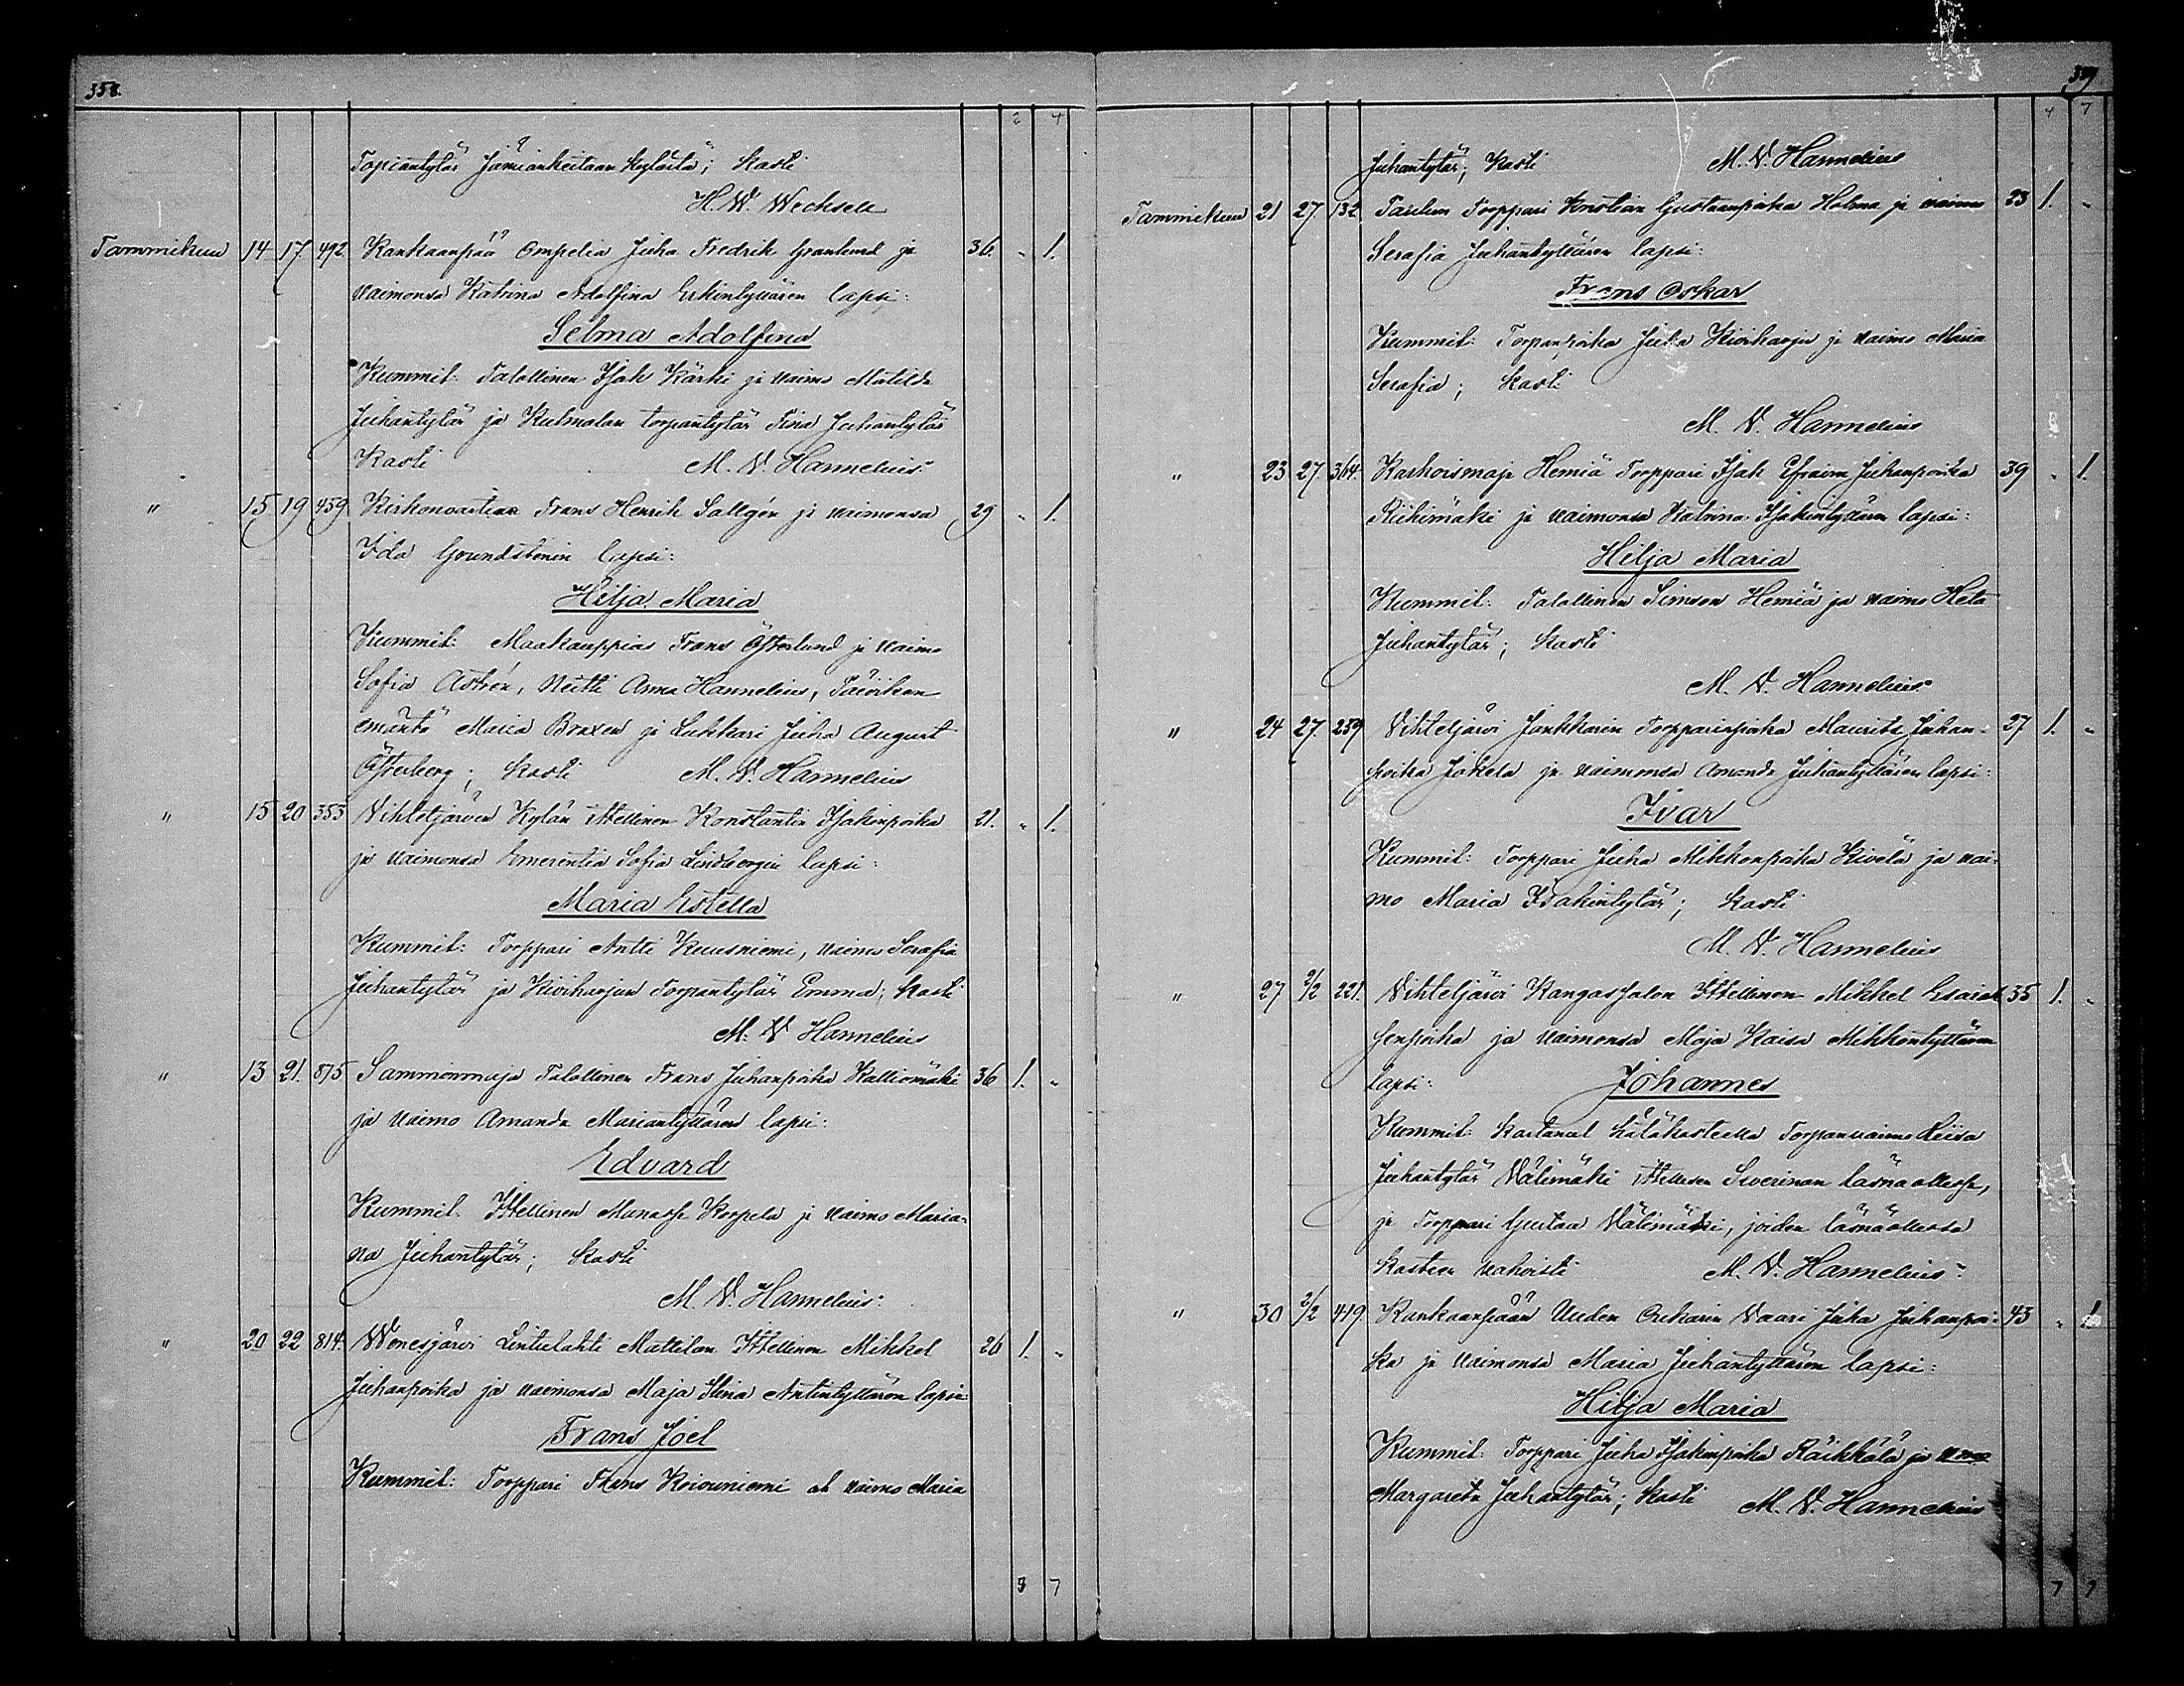 358.
2 4
Topiantytär Jämiänkeitaan kylästä; kasti
H. W. Wechsell
Tammikuu 14 17. 492 Kankaanpää Ompelia Juha Fredrik Granlund ja 36. " 1.
vaimonsa Katrina Adolfina Erkintyttären lapsi:
Selma Adolfina
Kummit: Talollinen Isak Kärki ja vaimo Matilda
Juhantytär ja Kulmalan torpantytär Fina Juhantytär
kasti M. V. Hannelius
" 15 19 459 Kirkonvartian Frans Henrik Sallgén ja vaimonsa 29 " 1.
Ida Grundstenin lapsi:
Hilja Maria
Kummit: Maakauppias Frans Österlund ja vaimo
Sofia Astrén, Neitti Anna Hannelius,
emäntä Maria Braxen ja Lukkari Juha August
Österberg; kasti M. V. Hannelius
" 15 20 353 Vihteljärven Kylän itsellinen Konstantin Isakinpoika 21. " 1.
ja vaimonsa Emerentia Sofia Lindbergin lapsi:
Maria Estella
Kummit: Torppari Antti Kuusniemi, vaimo Serafia
Juhantytär ja Kiviharjun Torpantytär Emma; kasti
M. V. Hannelius
" 13 21. 875 Sammonmaja Talollinen Frans Juhanpoika Kalliomäki 36 1. "
ja vaimo Amanda Mariantyttären lapsi:
Edvard
Kummit: Itsellinen Manasse Korpela ja vaimo Maria-
na Juhantytär; kasti
M. V. Hannelius
" 20 22 814. Wenesjärvi Lintulahti Mattilan Itsellinen Mikkel 26 1. "
Juhanpoika ja vaimonsa Maja Stina Antintyttären lapsi:
Frans Joel
Kummit: Torppari Frans Koivuniemi ok vaimo Maria
7
359
4 7
Juhantytär; kasti M. V. Hannelius
Tammikuu 21 27. 132 Torppari Kristian Gustaanpoika Holma ja vaimo 23 1. "
Serafia Juhantyttären lapsi:
Frans Oskar
Kummit: Torpanpoika Juha Kiviharju ja vaimo Maria
Serafia; kasti
M. V. Hannelius
" 23 27. 364. Karhoismaja Hemiä Torppari Isak Efraim Juhanpoika 39 " 1.
Riihimäki ja vaimonsa Katrina Isakintyttären lapsi:
Hilja Maria
Kummit: Talollinen Simson Hemiä ja vaimo Heta
Juhantytär; kasti
M. V. Hannelius
" 24 27. 239 Vihteljärvi Jankkarin Torpparinpoika Maurits Juhan- 27 1. "
poika Jokela ja vaimonsa Amanda Juhantyttären lapsi:
Ivar
Kummit: Torppari Juha Mikkonpoika Kivelä ja vai-
mo Maria Isakintytär; kasti
M. V. Hannelius
" 27 2/2 221. Vihteljärvi Kangassalon Itsellinen Mikkel Esaiak- 35 1. "
senpoika ja vaimonsa Maja Kaisa Mikkontyttären
lapsi: Johannes
Kummit: kastanut hätäkasteella Torpanvaimo Liisa
Juhantytär Välimäki itsellisen Severinan läsnä ollessa,
ja Torppari Gustaa Välimäki, joiden läsnäollessa
kasteen vahvisti M. V. Hannelius
" 30 2/2 419. Kankaanpään Uuden Vaari Juha Juhanpoi- 43 " 1.
ka ja vaimonsa Maria Juhantyttären lapsi:
Hilja Maria
Kummit: Torppari Juha Isakinpoika Räikkölä ja vaimo
Margareta Juhantytär; kasti M. V. Hannelius
7 7